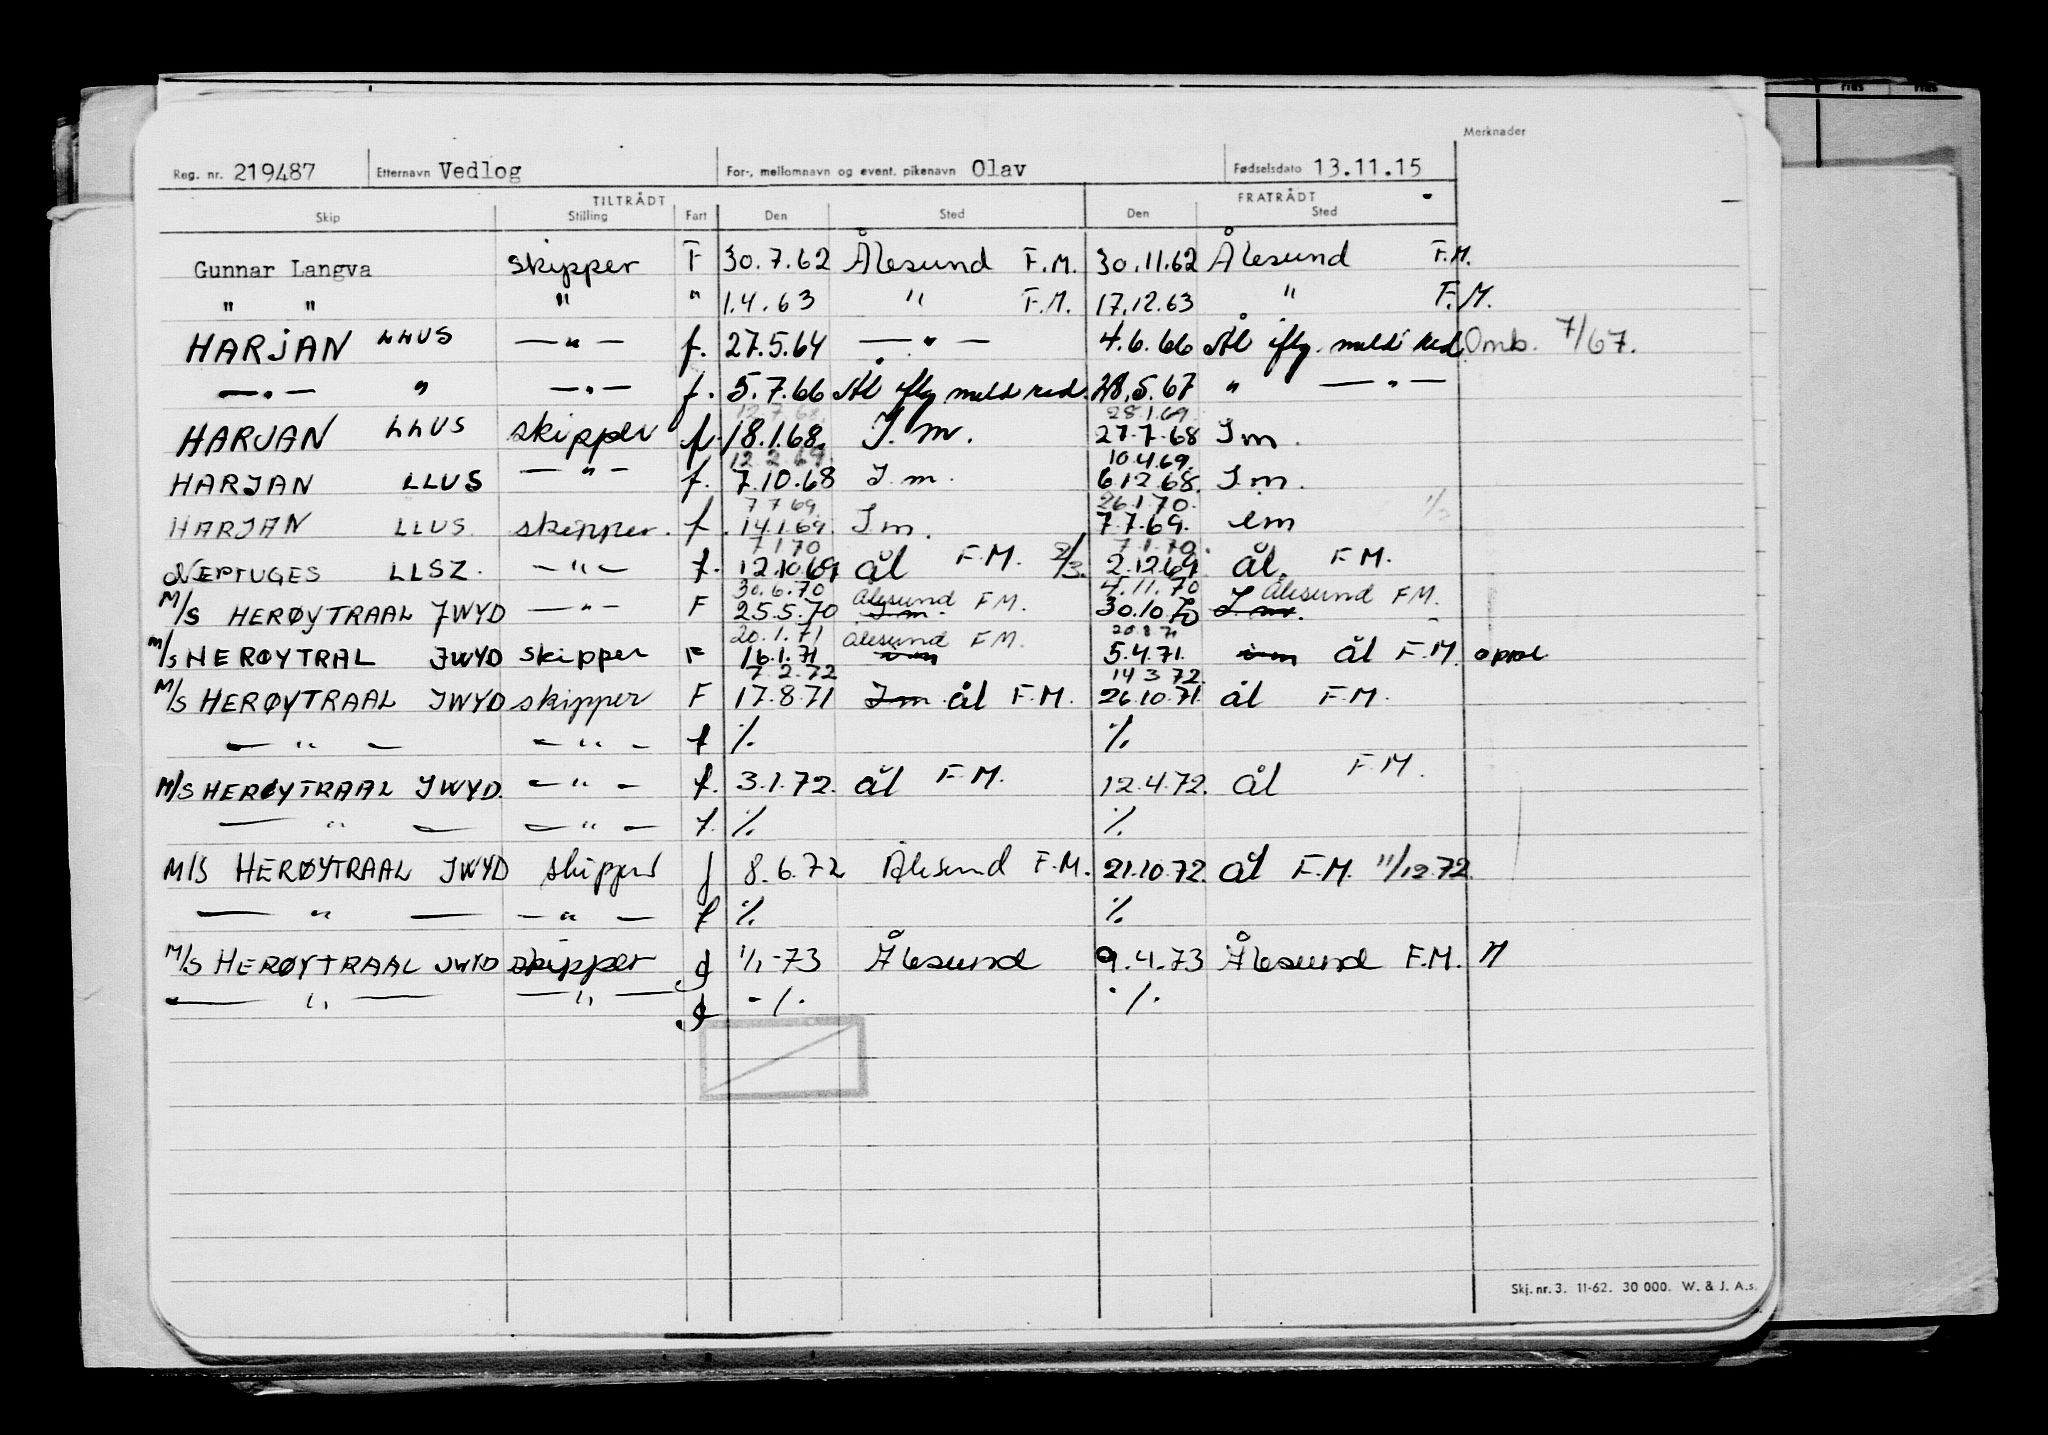 Merknader
Reg. nr. 219487 Etternavn Vedlog For-, mellomnavn og event. pikenavn Olav Fødselsdato 13.11.15
TILTRÅDT FRATRÅDT
Skip Stilling Fart Den Sted Den Sted
Gunnar Langva skipper F 30.7.62 Ålesund F.M. 30.11.62 Ålesund F.M.
" " " " 1.4.63 " F.M. 17.12.63 " F.M.
HARJAN LLUS — " — f. 27.5.64 — " — 4.6.66 Ål iflg. meld red Omb. 7/67.
— " — " — " — f. 5.7.66 Ål iflg meld red. 28.5.67 " — " —
12.7.68. 28.1.69.
HARJAN LLUS skipper f. 18.1.68. I.m. 27.7.68 I m.
12.2.69. 10.4.69.
HARJAN LLUS — " — f. 7.10.68 I.m. 6.12.68. I.m.
7 7 69. 26.1.70.
HARJAN LLUS. skipper. f. 14.1.69. I m. 7.7.69. im
7 1 70 7.1.70.
NEPTUGES LLSZ. — " — f. 12.10.69 ål F.M. 2/3. 2.12.69 ål. F.M.
30.6.70 Ålesund F.M. 4.11.70 Ålesund F.M.
M/S HERØYTRAAL JWYD — " — F 25.5.70 I.m. 30.10.70 I.m.
20.1.71 Ålesund F.M. 20.8.71
M/S HERØYTRAL JWYD skipper F 16.1.71 im 5.4.71. im ål F.M.
7.2.72 14 3 72.
M/S HERØYTRAAL JWYD skipper F 17.8.71 I m ål F.M. 26.10.71 ål F.M.
— " — — " — f ./. ./.
M/S HERØYTRAAL JWYD. — " — f. 3.1.72. ål F.M. 12.4.72. ål F.M.
— " — — " — f. ./. ./.
M/S HERØYTRAAL JWYD skipper f 8.6.72 Ålesund F.M. 21.10.72. ål F.M. 11/12.72.
— " — — " — f ./. ./.
M/S HERØYTRAAL JWYD skipper f 1/1-73 Ålesund 9.4.73 Ålesund F.M. "
— " — — " — f - /. ./.
Skj. nr. 3. 11-62. 30 000. W. & J. A.s.